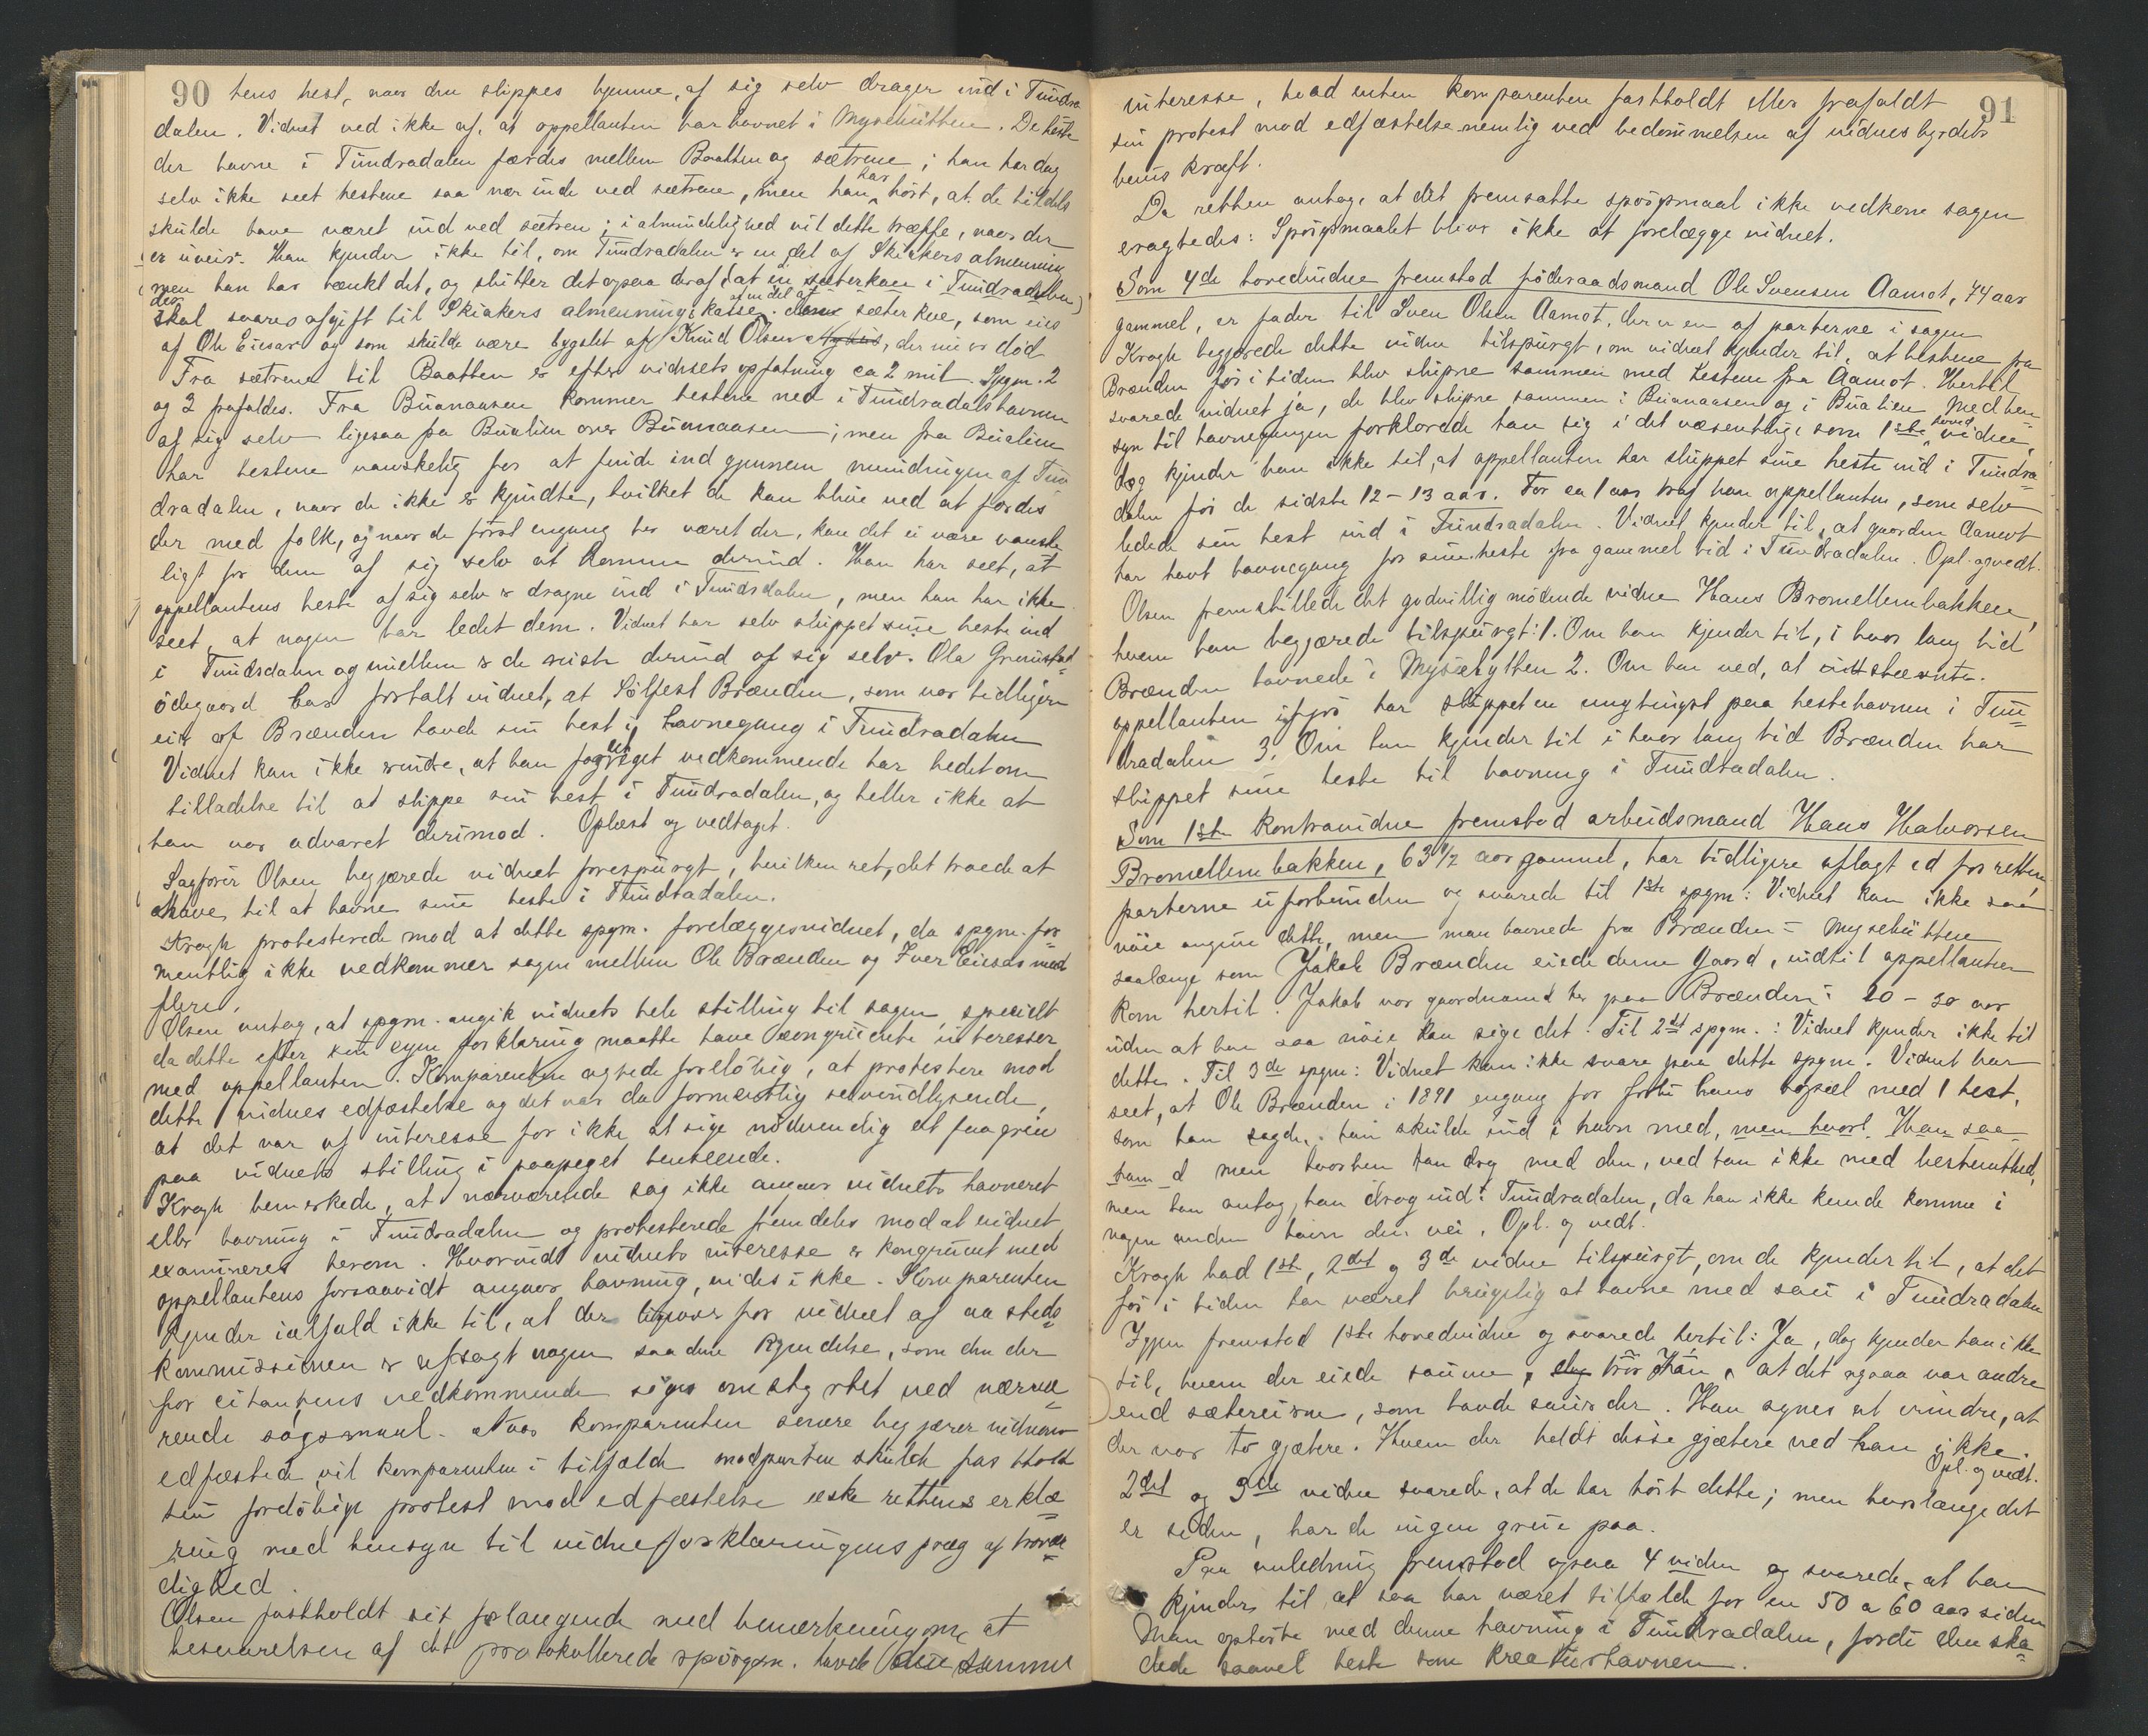 90 tens hest, naar den slippes hjemme, af sig selv drager ind i Tundra
dalen. Vidnet ved ikke af, at appellanten har havnet i Mysehütten. De heste
der havne i Tundradalen færdes mellem Baatten og sætrene; han har dog
selv ikke seet hestene saa nær inde ved sætrene, men han har hört, at de tildels
skulde have været ind ved sætren; i almindelighed vil dette træffe, naar der
er uveir. Han kjender ikke til, om Tundradalen er en del af Skiakers almenning
men han har tænkt det, og slutter det ogsaa deraf at en sæterkve i Tundradalen
der skal svares afgift til Skiakers almenningskasse af en del af sæterkve, som eies
af Ole Eiesar og som skulde være bygslet af Knud Olsen, der nu er död
Fra sætrene til Baatten er efter vidnets opfatning ca 2 mil. Spgm. 2
og 3 frafaldes. Fra Buanaasen kommer hestene ned i Tundradalshavnen
af sig selv ligesaa fra Bualien over Buanaasen; men fra Bualien
har hestene vanskelig for at finde ind gjennem mundingen af Tun
dradalen, naar de ikke er kjendte, hvilket de kan blive ved at færdes
der med folk, og naar de först engang har været der, kan det ei være vanske
ligt for dem af sig selv at komme derind. Han har seet, at
appellantens heste af sig selv er dragne ind i Tundsdalen, men han har ikke
seet, at nogen har ledet dem. Vidnet har selv sluppet sine heste ind
i Tundsdalen og imellem er de reiste derind af sig selv. Ola Grimstad
ödegaard har fortalt vidnet, at Sölfest Brænden, som var tidligere
eier af Brænden havde sin hest i havnegang i Tundradalen
Vidnet kan ikke erindre, at han for eget vedkommende har bedet om
tilladelse til at slippe sin hest i Tundradalen, og heller ikke at
han var advaret derimod. Oplæst og vedtaget.
Sagförer Olsen begjærede vidnet forespurgt, hvilken ret, det troede at
have til at havne sine heste i Tundradalen.
Kragh protesterede mod at dette spgm. forelægges vidnet, da spgm. for
mentlig ikke vedkommer sagen mellem Ole Brænden og Iver Eiesar med
flere.
Olsen antog, at spgm. angik vidnets hele stilling til sagen, specielt
da dette efter sin egen forklaring maatte have congruente interesser
med appellanten. Komparenten agtede forelöbig, at protestere mod
dette vidnes edfæstelse og det var da formentlig selvindlysende,
at det var af interesse for ikke at sige nödvendig at faa greie
paa vidnets stilling i paapeget henseende.
Kragh bemerkede, at nærværende sag ikke angaar vidnets havneret
eller havning i Tundradalen og protesterede fremdeles mod at vidnet
examineres herom. Hvorvidt vidnets interesse er kongruent med
appellantens forsaavidt angaar havning, vides ikke. Komparenten
kjender ialfald ikke til, at der ligeover for vidnet af aa steds
kommissionen er afsagt nogen saadan kjendelse, som den der
for citantens vedkommende söges omstyrtet ved nærvæ
rende sögsmaal. Naar komparenten senere begjærer vidnerne
edfæstede, vil komparenten i tilfælde modparten skulde fastholde
sin forelöbige protest mod edfæstelse æske rettens erklæ
ring med hensyn til vidneforklaringens præg af trovær
dighed.
Olsen fastholdt sit forlangende med bemærkning om, at
besvarelsen af det protokollerede spörgsm. havde den samme
91
interesse, hvad enten komparenten fastholdt eller frafaldt
sin protest mod edfæstelse nemlig ved bedömmelsen af vidnesbyrdets
bevis kraft.
Da retten antog, at det fremsatte spörgsmaal ikke vedkom sagen
eragtedes: Spörgsmaalet bliver ikke at forelægge vidnet.
Som 4de hovedvidne fremstod föderaadsmand Ole Svensen Aamot, 74 aar
gammel, er fader til Sven Olsen Aamot, der er en af parterne i sagen
Kragh begjærede dette vidne tilspurgt, om vidnet kjender til, at hestene fra
Brænden för i tiden blev slupne sammen med hestene fra Aamot. Hertil
svarede vidnet ja, de blev slupne sammen i Buanaasen og i Bualien. Med hen
syn til havnegangen forklarede han sig i det væsentlige som 1ste hoved vidne,
dog kjender han ikke til, at appellanten har sluppet sine heste ind i Tundra
dalen för de sidste 12-13 aar. For ca 1 aar traf han appellanten, som selv
ledede sin hest ind i Tundradalen. Vidnet kjender til, at gaarden Aamot
har havt havnegang for sine heste fra gammel tid i Tundradalen. Opl. og vedt.
Olsen fremstillede det godvillig mödende vidne Hans Bromellembakken,
hvem han begjærede tilspurgt: 1. Om han kjender til, i hvor lang tid
Brænden havnede i Mysehytten 2. Om han ved, at indstevnte.
appellanten ifjor har sluppet en ungtingst paa hestehavnen i Tun
dradalen 3. Om han kjender til i hvor lang tid Brænden har
sluppet sine heste til havning i Tundradalen.
Som 1ste kontravidne fremstod arbeidsmand Hans Halvorsen
Bromellembakken, 63 1/2 aar gammel, har tidligere aflagt ed for retten,
parterne uforbunden og svarede til 1ste spgm: Vidnet kan ikke saa
nöie angive dette, men man havnede fra Brænden i Mysehütten
saalænge som Jakob Brænden eiede denne gaard, indtil appellanten
kom hertil. Jakob var gaardmand her paa Brænden i 20-30 aar
uden at han saa nöie kan sige det. Til 2det spgm.: Vidnet kjender ikke til
dette. Til 3de spgm: Vidnet kan ikke svare paa dette spgm. Vidnet har
seet, at Ole Brænden i 1891 engang for forbi hans bopæl med 1 hest,
som han sagde, han skulde ind i havn med, men hvort. Han saa
ham d men hvorhen han drog med den, ved han ikke med bestemthed,
men han antog, han drog ind i Tundradalen, da han ikke kunde komme i
nogen anden havn den vei. Opl. og vedt.
Kragh bad 1ste, 2det og 3de vidne tilspurgt, om de kjender til, at det
för i tiden har været brugelig at havne med sau i Tundradalen
Igjen fremstod 1ste hovedvidne og svarede hertil: Ja, dog kjender han ikke
til, hvem der eiede sauene, tror han, at det ogsaa var andre
end sætereierne, som havde sauer der. Han synes at erindre, at
der var to gjætere. Hvem der holdt disse gjætere ved han ikke.
Opl. og vedt.
2det og 3de vidne svarede, at de har hört dette; men hvorlænge det
er siden, har de ingen greie paa.
Paa anledning fremstod ogsaa 4 vidne og svarede, at han
kjender til, at saa har været tilfælde for en 50 a 60 aar siden
Man ophörte med denne havning i Tundradalen, fordi den ska
dede saavel heste som kreaturhavnen.